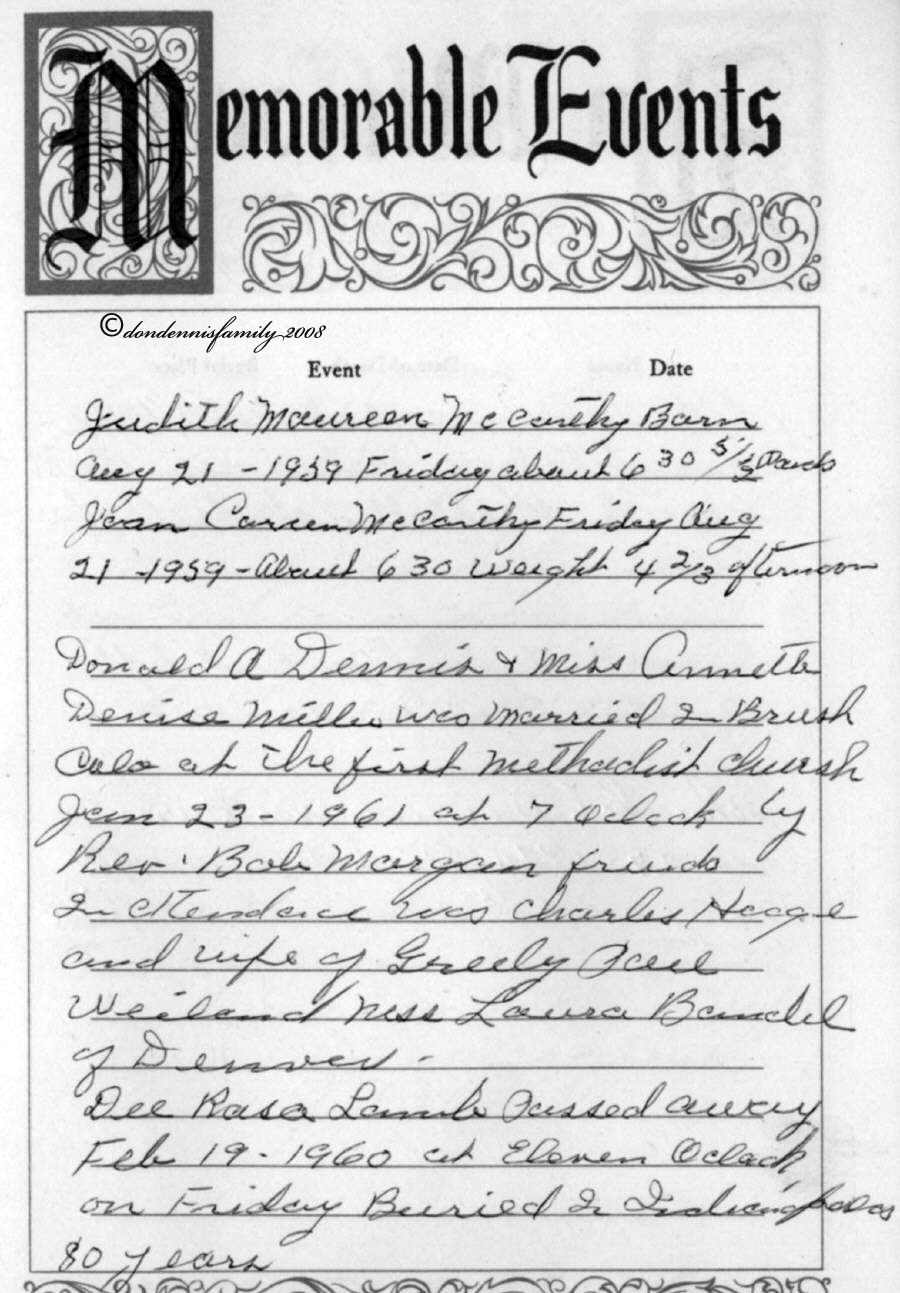 Memorable Events
©dondennisfamily 2008
Event Date
Judith Maureen McCarthy Born
Aug 21 - 1959 Friday about 6 30 5 1/2
Jean McCarthy Friday Aug
21 - 1959 - About 6 30 Weight 4 2/3 afternoon
Donald A Dennis & Miss Annette
Denise Miller was Married In Brush
Colo at the first Methodist Church
Jan 23 - 1961 at 7 Oclock by
Rev. Bob Morgan
In attendance was Charles Hogge
and wife of Greely Paul
Weiland Miss Laura Bandel
of Denver -
Dee Rosa Lamb Passed away
Feb 19 - 1960 at Eleven Oclock
on Friday Buried In Indianapolas
80 years